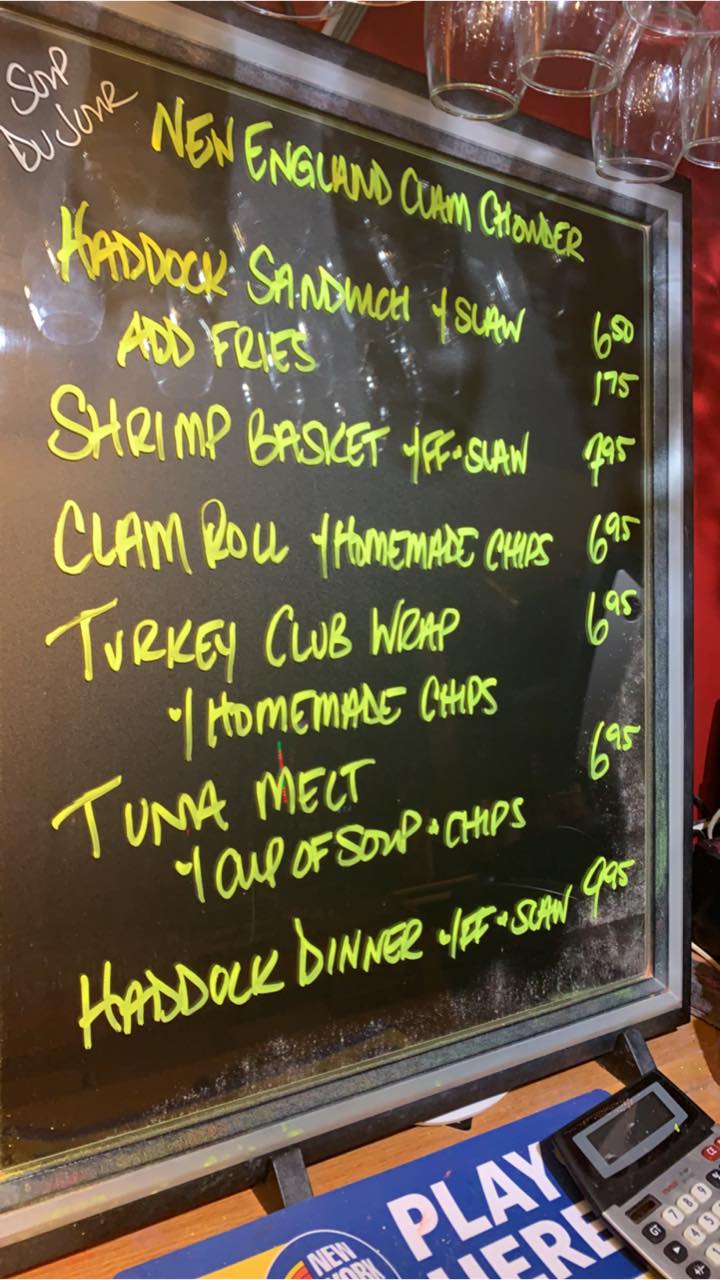 SOUP
DU JOUR
NEW ENGLAND CLAM CHOWDER
HADDOCK SANDWICH w/ SLAW 6.50
ADD FRIES 1.75
SHRIMP BASKET w/FF + SLAW 7.95
CLAM ROLL w/HOMEMADE CHIPS 6.95
TURKEY CLUB WRAP 6.95
w/HOMEMADE CHIPS
TUNA MELT 6.95
w/ CUP OF SOUP + CHIPS
HADDOCK DINNER w/FF + SLAW 9.95
PLAY
HERE
NEW
YORK